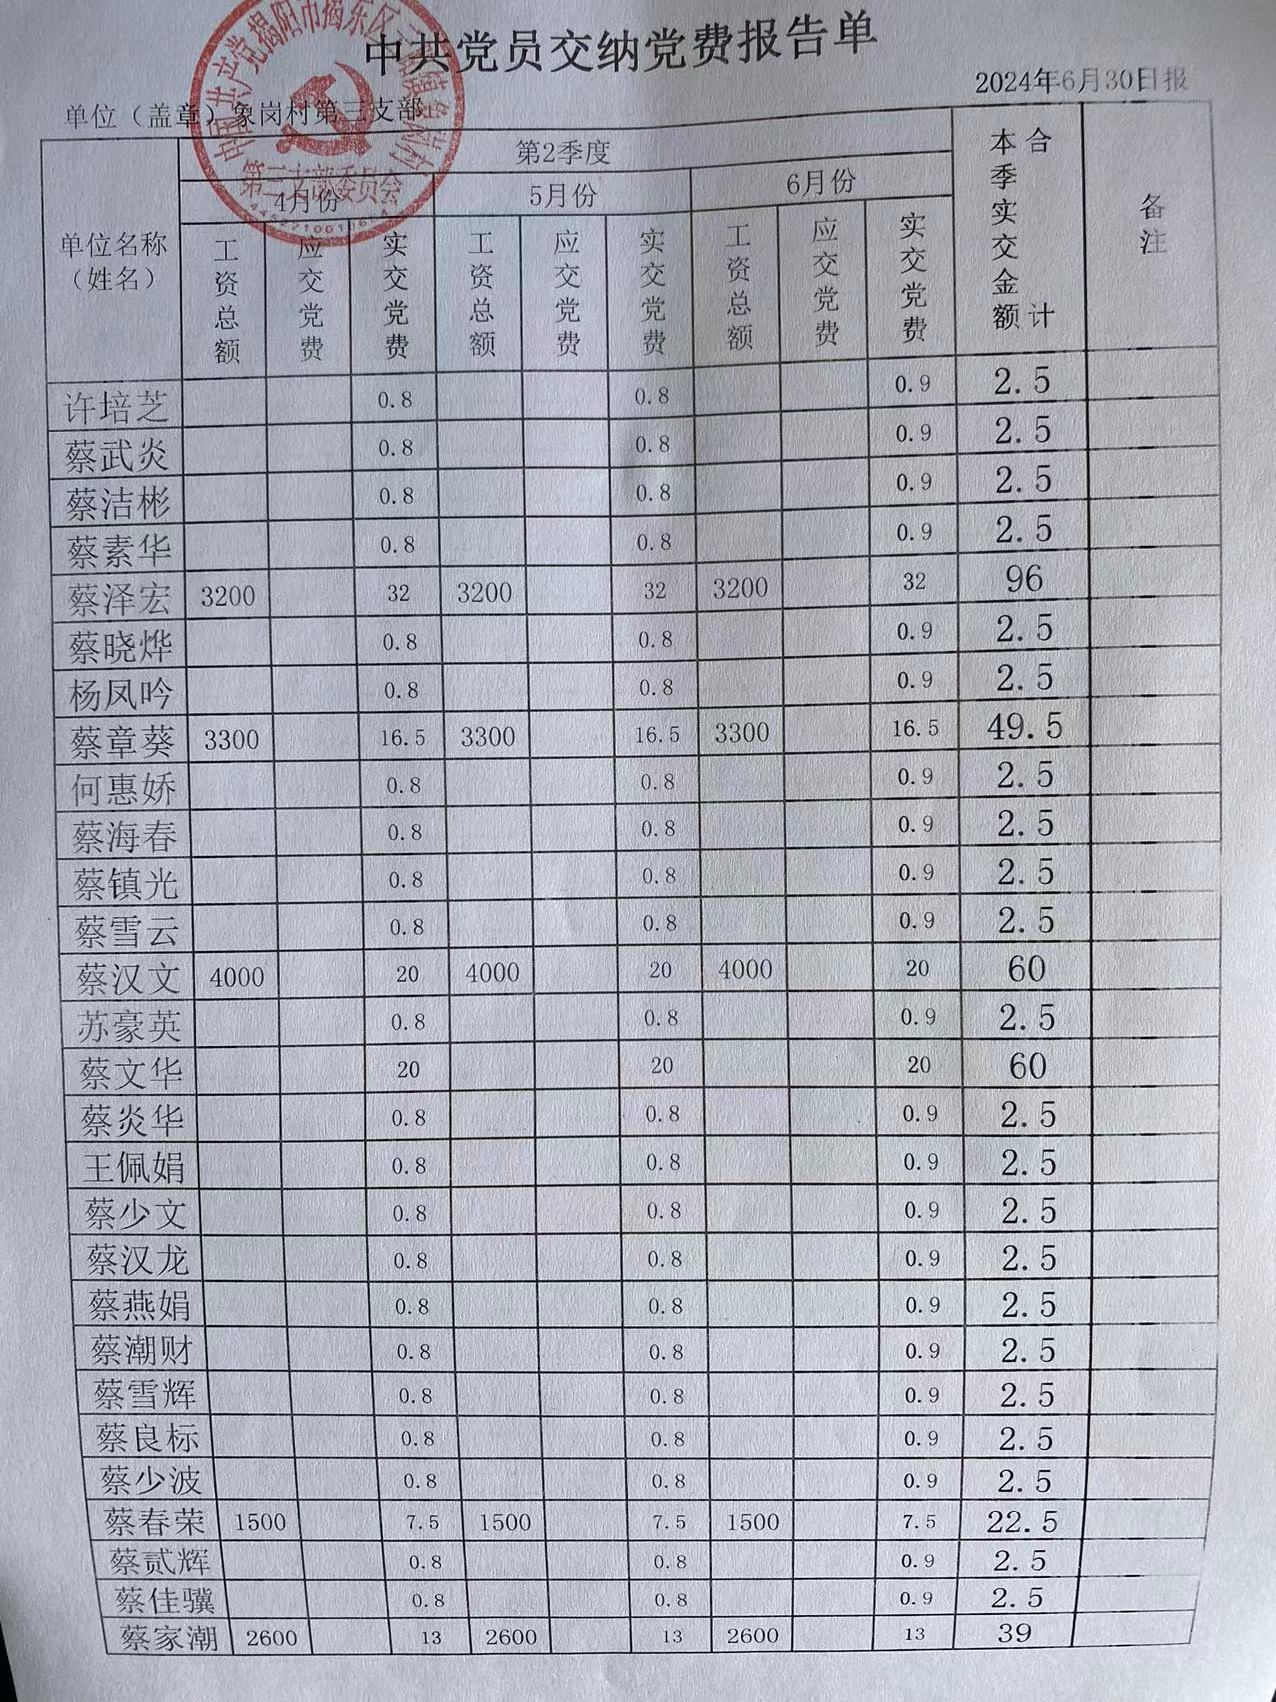 中共党员交纳党费报告单
2024年6月30日报
单位（盖章）象岗村第三支部
第三支部委员会
单位名称（姓名） 第2季度 本季实交金额合计 备注
4月份 5月份 6月份
工资总额 应交党费 实交党费 工资总额 应交党费 实交党费 工资总额 应交党费 实交党费
许培芝 0.8 0.8 0.9 2.5
蔡武炎 0.8 0.8 0.9 2.5
蔡洁彬 0.8 0.8 0.9 2.5
蔡素华 0.8 0.8 0.9 2.5
蔡泽宏 3200 32 3200 32 3200 32 96
蔡晓烨 0.8 0.8 0.9 2.5
杨凤吟 0.8 0.8 0.9 2.5
蔡章葵 3300 16.5 3300 16.5 3300 16.5 49.5
何惠娇 0.8 0.8 0.9 2.5
蔡海春 0.8 0.8 0.9 2.5
蔡镇光 0.8 0.8 0.9 2.5
蔡雪云 0.8 0.8 0.9 2.5
蔡汉文 4000 20 4000 20 4000 20 60
苏豪英 0.8 0.8 0.9 2.5
蔡文华 20 20 20 60
蔡炎华 0.8 0.8 0.9 2.5
王佩娟 0.8 0.8 0.9 2.5
蔡少文 0.8 0.8 0.9 2.5
蔡汉龙 0.8 0.8 0.9 2.5
蔡燕娟 0.8 0.8 0.9 2.5
蔡潮财 0.8 0.8 0.9 2.5
蔡雪辉 0.8 0.8 0.9 2.5
蔡良标 0.8 0.8 0.9 2.5
蔡少波 0.8 0.8 0.9 2.5
蔡春荣 1500 7.5 1500 7.5 1500 7.5 22.5
蔡贰辉 0.8 0.8 0.9 2.5
蔡佳骥 0.8 0.8 0.9 2.5
蔡家潮 2600 13 2600 13 2600 13 39